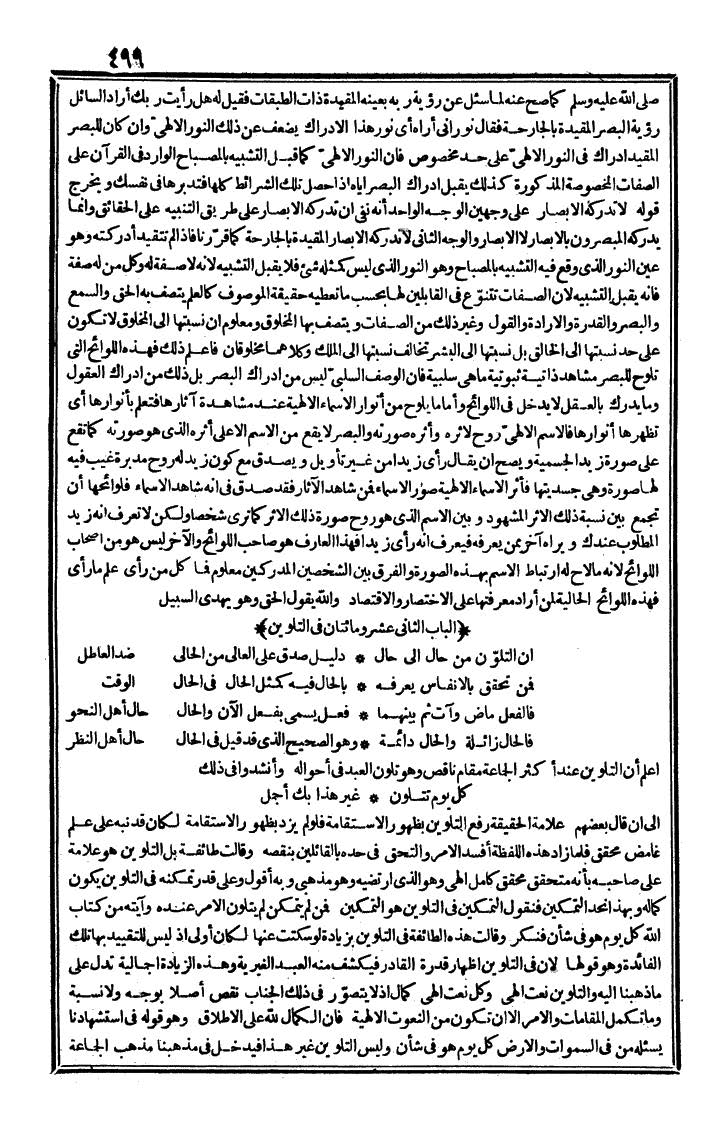 ٤٩٩
صلى الله عليه وسلم كما صح عنه لما سئل عن رؤية ربه بعينه المقيدة ذات الطبقات فقيل له هل رأيت ربك أراد السائل
رؤية البصر المقيدة بالجارحة فقال نوراني أراه أي نور هذا الادراك يضعف عن ذلك النور الالهي وان كان للبصر
المقيد ادراك في النور الالهي على حد مخصوص فان النور الالهي كما قبل التشبيه بالمصباح الوارد في القرآن على
الصفات المخصوصة المذكورة كذلك يقبل ادراك البصر اياه اذا حصل تلك الشرائط كلها فتدبرها في نفسك ويخرج
قوله لا تدركه الابصار على وجهين الوجه الواحد أنه نفي ان تدركه الابصار على طريق التنبيه على الحقائق وانما
يدركه المبصرون بالابصار لا الابصار والوجه الثاني لا تدركه الابصار المقيدة بالجارحة كما قررنا فاذا لم تتقيد أدركته وهو
عين النور الذي وقع فيه التشبيه بالمصباح وهو النور الذي ليس كمثله شئ فلا يقبل التشبيه لانه لا صفة له وكل من له صفة
فانه يقبل التشبيه لان الصفات تتنوع في القابلين لها بحسب ما تعطيه حقيقة الموصوف كالعلم يتصف به الحق والسمع
والبصر والقدرة والارادة والقول وغير ذلك من الصفات ويتصف بها المخلوق ومعلوم ان نسبتها الى المخلوق لا تكون
على حد نسبتها الى الخالق بل نسبتها الى البشر تخالف نسبتها الى الملك وكلاهما مخلوقان فاعلم ذلك فهذه اللوائح التي
تلوح للبصر مشاهد ذاتية ثبوتية ما هي سلبية فان الوصف السلبي ليس من ادراك البصر بل ذلك من ادراك العقول
وما يدرك بالعقل لا يدخل في اللوائح وأما ما يلوح من أنوار الاسماء الالهية عند مشاهدة آثارها فتعلم بأنوارها أي
تظهرها أنوارها فالاسم الالهي روح لاثره وأثره صورته والبصر لا يقع من الاسم الا على أثره الذي هو صورته كما تقع
على صورة زيد الجسمية ويصح ان يقال رأى زيدا من غير تأويل ويصدق مع كون زيد له روح مدبرة غيب فيه
لها صورة وهي جسديتها فأثر الاسماء الالهية صور الاسماء فمن شاهد الآثار فقد صدق في انه شاهد الاسماء فلوائحها أن
تجمع بين نسبة ذلك الاثر المشهود وبين الاسم الذي هو روح صورة ذلك الاثر كما ترى شخصا ولكن لا تعرف انه زيد
المطلوب عندك ويراه آخر ممن يعرفه فيعرف انه رأى زيدا فهذا العارف هو صاحب اللوائح والآخر ليس هو من اصحاب
اللوائح لانه ما لاح له ارتباط الاسم بهذه الصورة والفرق بين الشخصين المدركين معلوم فما كل من رأى علم ما رأى
فهذه اللوائح الحالية لمن أراد معرفتها على الاختصار والاقتصاد والله يقول الحق وهو يهدى السبيل
﴿الباب الثاني عشر ومائتان في التلوين﴾
ان التلوّن من حال الى حال * دليل صدق على العالي من الحالي ضد العاطل
فمن تحقق بالانفاس يعرفه * بالحال فيه كمثل الحال في الحال الوقت
فالفعل ماض وآت ثم بينهما * فعل يسمى بفعل الآن والحال حال أهل النحو
فالحال زائلة والحال دائمة * وهو الصحيح الذي قد قيل في الحال حال أهل النظر
اعلم أن التلوين عند أكثر الجماعة مقام ناقص وهو تلون العبد في أحواله وأنشدوا في ذلك
كل يوم تتلون * غير هذا بك أجمل
الى ان قال بعضهم علامة الحقيقة رفع التلوين بظهور الاستقامة فلو لم يزد بظهور الاستقامة لكان قد نبه على علم
غامض محقق فلما زاد هذه اللفظة أفسد الامر والتحق في حده بالقائلين بنقصه وقالت طائفة بل التلوين هو علامة
على صاحبه بأنه متحقق محقق كامل الهي وهو الذي ارتضيه وهو مذهبي وبه أقول وعلى قدر تمكنه في التلوين يكون
كماله وبهذا نحد التمكين فنقول التمكين في التلوين هو التمكين فمن لم يتمكن لم يتلون الامر عنده وآيته من كتاب
الله كل يوم هو في شأن فنكر وقالت هذه الطائفة في التلوين بزيادة لو سكتت عنها لكان أولى اذ ليس للتقييد بها تلك
الفائدة وهو قولها لان في التلوين اظهار قدرة القادر فيكشف منه العبد الغيرية وهذه الزيادة اجمالية تدل على
ما ذهبنا اليه والتلوين نعت الهي وكل نعت الهي كمال اذ لا يتصوّر في ذلك الجناب نقص أصلا بوجه ولا نسبة
وما تكمل المقامات والامر الا ان تكون من النعوت الالهية فان الكمال لله على الاطلاق وهو قوله في استشهادنا
يسئله من في السموات والارض كل يوم هو في شأن وليس التلوين غير هذا فيدخل في مذهبنا مذهب الجماعة